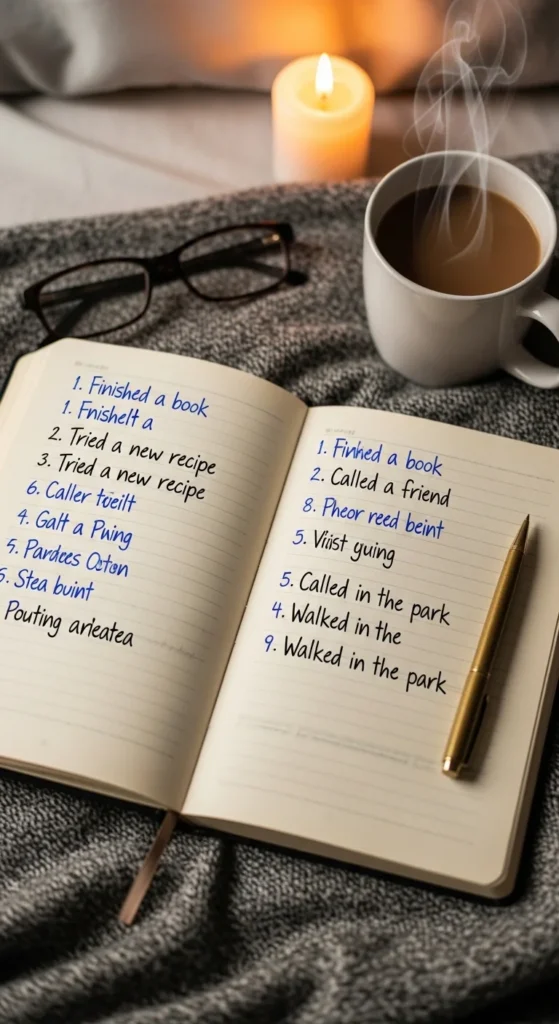 1. Finished a book
1. Fnishelt a
2. Tried a new recipe
3. Tried a new recipe
6. Caller tüeilt
4. Galt a Pwing
5. Pardees Oston
5. Stea buint
Pouting arleatea
1. Finhed a book
2. Called a friend
8. Pheor reed beint
5. Viist guing
5. Called in the park
4. Walked in the
9. Walked in the park